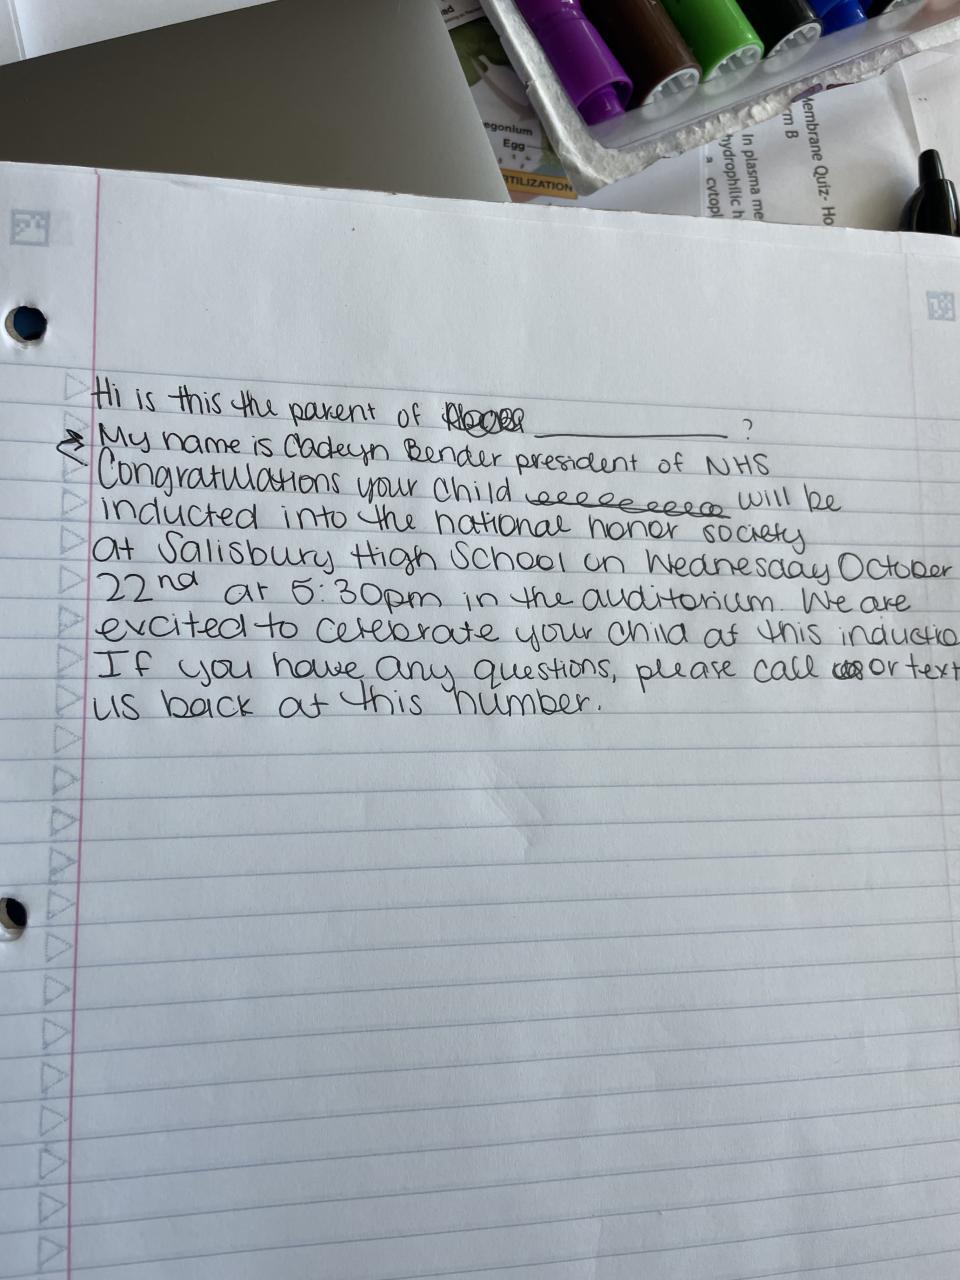 egonium
Egg
TILIZATION
Membrane Quiz- Ho
rm B
In plasma me
hydrophilic h
a cytopl
Hi is this the parent of ____________ ?
My name is Cadeyn Bender president of NHS
Congratulations your child will be
inducted into the national honor society
at Salisbury High School on Wednesday October
22nd at 5:30pm in the auditorium. We are
excited to celebrate your child at this inductio
If you have any questions, please call or text
us back at this number.